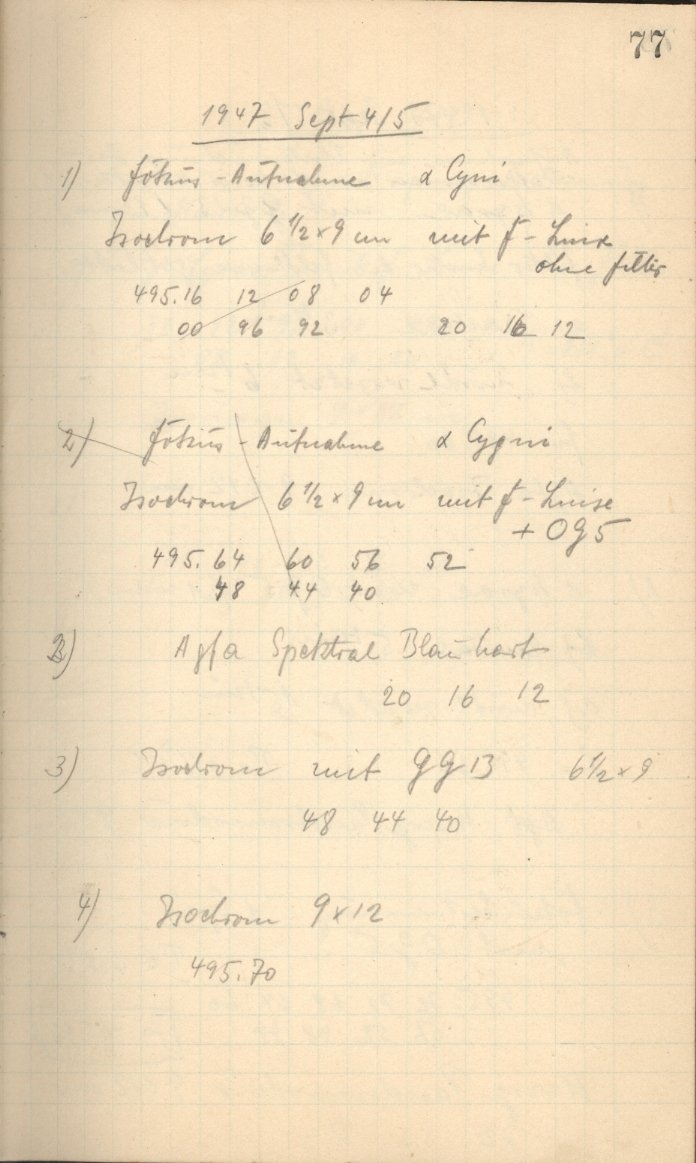 77
1947 Sept 4/5
1) Fokus-Aufnahme α Cyni
Isochrom 6 1/2 × 9 cm mit F-Linse
ohne Filter
495.16 12 08 04
00 96 92 20 16 12
2) Fokus-Aufnahme α Cygni
Isochrom 6 1/2 × 9 cm mit F-Linse
+ OG5
495.64 60 56 52
48 44 40
2) Agfa Spektral Blau hart
20 16 12
3) Isochrom mit GG13 6 1/2 × 9
48 44 40
4) Isochrom 9×12
495.70